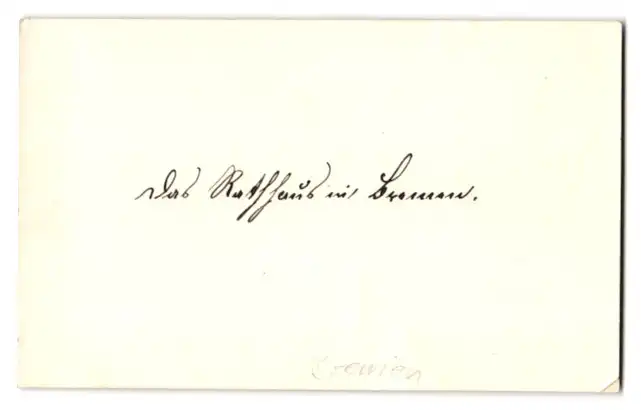 Das Rathhaus in Bremen.
Bremen